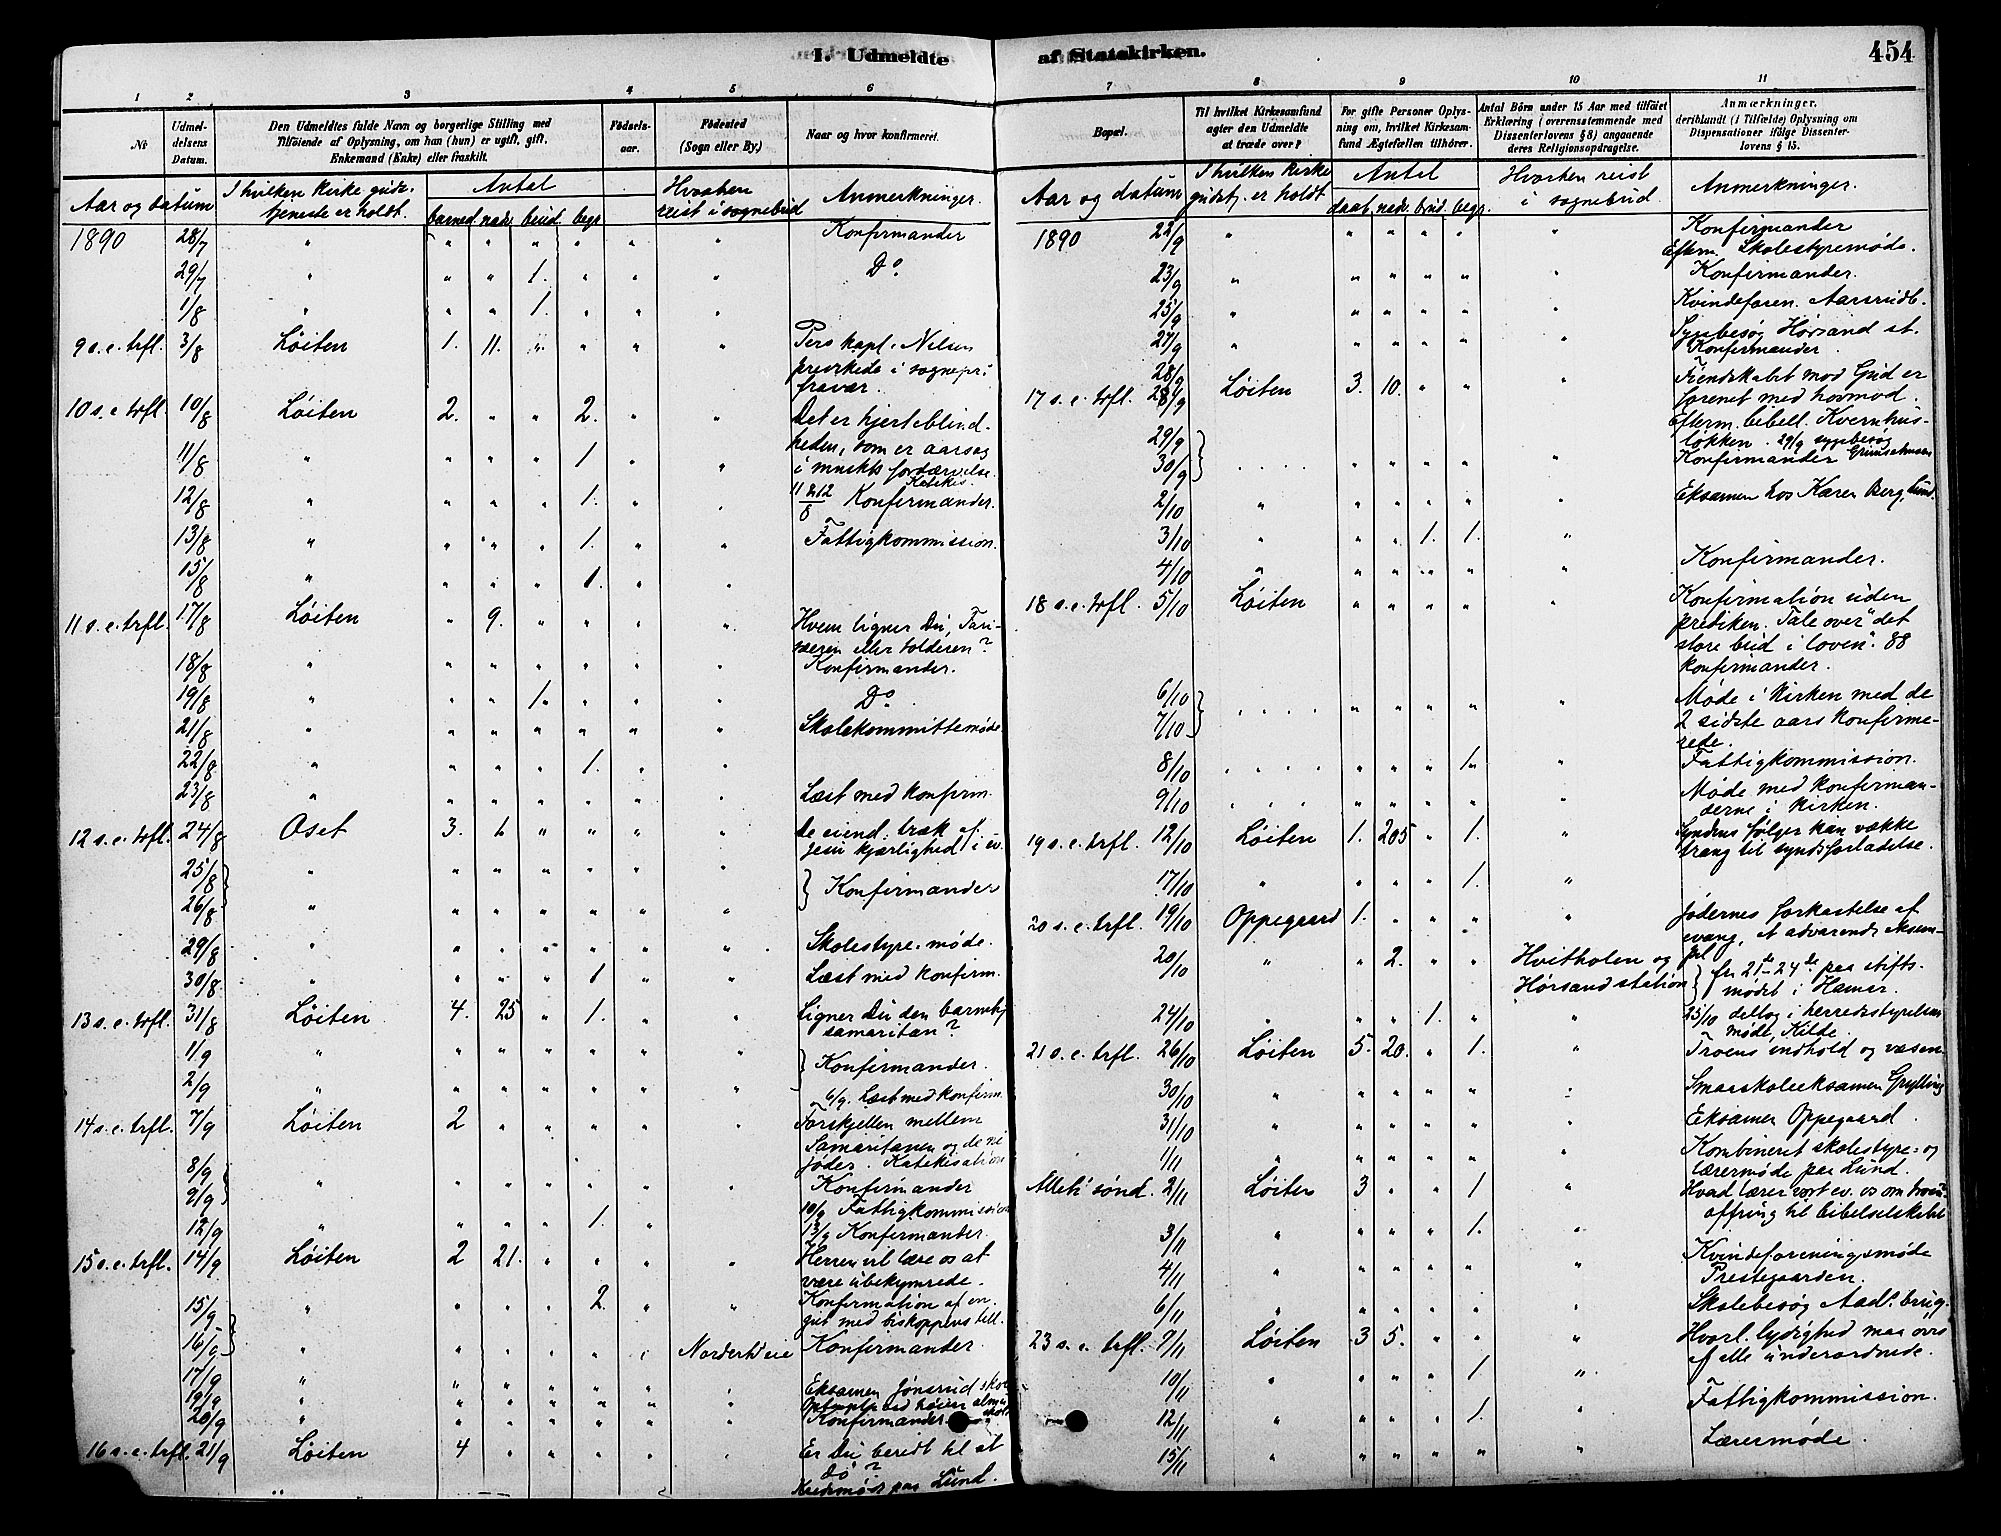 I. Udmeldte af Statskirken.
454
1 2 3 4 5 6
No
Udmel-
delsens
Datum.
Den Udmeldtes fulde Navn og borgerlige Stilling med
Tilföiende af Oplysning, om han (hun) er ugift, gift,
Enkemand (Enke) eller fraskilt.
Födsels-
aar.
Födested
(Sogn eller By.)
Naar og hvor konfirmeret.
Aar og datum
I hvilken kirke gudstjeneste er holdt.
Antal
barned. nadv. brud. begr.
Hvorhen
reist i sognebud
Anmerkninger.
1890 28/7 " " " " " " " Konfirmander
29/7 " " " 1. " " " Do
1/8 " " " 1. " " "
9 s. e. trfl. 3/8 Løiten 1. 11. " " " " Pers kapl. Nilsen
prædikede i sognepr:
fravær.
10 s. e. trfl. 10/8 Løiten 2. " " 2. " " Det er hjerteblind-
heden, som er aarsag
i mnskts fordærvelse.
11/8 " " " " 1 " "
12/8 " " " " 1. " " 11 & 12/8 Konfirmander.
13/8 " " " " 1. " " Fattigkommission.
15/8 " " " " 1. " "
11 s. e. trfl. 17/8 Løiten " 9. " " " " Hvem ligner Du, Fari-
sæeren eller tolderen?
18/8 " " " " " " " Konfirmander.
19/8 " " " 1. " " " Do
21/8 " " " " " " " Skolekommittemøde.
22/8 " " " " 1. " "
23/8 " " " " " " " Læst med konfirm.
12 s. e. trfl. 24/8 Oset 3. 6 " " " " De eiend. træk af
Jesu kjærlighed i ev.
25/8 " " " " " " " } Konfirmander
26/8 " " " " " " "
29/8 " " " " " " " Skolestyre-møde.
30/8 " " " " 1 " " Læst med konfirm.
13 s. e. trfl. 31/8 Løiten 4. 25 " 1. " " Ligner Du den barmhj
samaritan?
1/9 " " " " " " " } Konfirmander.
2/9 " " " " " " " 6/9. Læst med konfirm.
14 s. e. trfl. 7/9 Løiten 2 " " " " " Forskjellen mellem
Samaritanen og de ni
jøder. Katekisation
8/9 " " " " " " " Konfirmander
9/9 10/9 Fattigkommission
12/9 " " " " 1. " 13/9 Konfirmander.
15 s. e. trfl. 14/9 Løiten 2 21. " " " " Herren vil lære os at
være ubekymrede.
15/9 " " " " 2. " " Konfirmation af en
gut med biskoppens till.
16/9 " " " " " " Norderhieie Konfirmander.
17/9 " " " " " " " Eksamen Jønsrud skole
19/9 " " " " " " "
20/9 " " " " " " " Konfirmander
16 s. e. trfl. 21/9 Løiten 4 " " " " " Er Du beredt til at
dø?
Kredsmøde paa Lund.
7 8 9 10 11
Bopæl.
Til hvilket Kirkesamfund
agter den Udmeldte
at træde over?
For gifte Personer Oplys-
ning om, hvilket Kirkesam-
fund Ægtefællen tilhörer.
Antal Börn under 15 Aar med tilföiet
Erklæring (overensstemmende med
Dissenterlovens § 8) angaaende
deres Religionsopdragelse.
Anmærkninger,
deriblandt (i Tilfælde) Oplysning om
Dispensationer ifölge Dissenter-
lovens § 15.
Aar og datum
I hvilken kirke
gudstj. er holdt
Antal
daab. nadv. brud. begr.
Hvorhen reist
i sognebud.
Anmerkninger.
1890 22/9 " " " " " " Konfirmander
Efterm. Skolestyremøde.
23/9 " " " " " " Konfirmander.
25/9 " " " " " " Kvindeforen. Aarsrudb.
27/9 " " " " " " Sygebesøg Hørsand st.
Konfirmander.
28/9
17 s. e. trfl. 28/9 Løiten 3. 10. " " " Fiendskabet mod Gud er
forenet med hovmod.
Efterm. bibell. Kvernhus-
løkken. 29/9 sygebesøg
29/9
30/9 . . . . " " " " " Konfirmander
2/10 " " " " " " Eksamen hos Karen Berg, Lund.
3/10 " " " 1. 1. "
4/10 " " " " " " Konfirmander.
18 s. e. trfl. 5/10 Løiten " " " " " Konfirmation uden
prediken. Tale over "det
store bud i loven". 88
konfirmander.
6/10
7/10 . . . . " " " " " Møde i kirken med de
2 sidste aars konfirme-
rede.
8/10 . . . . " " " 1. " Fattigkommission.
9/10 . . . . " " " " " Møde med konfirman-
derne i kirken.
19 s. e. trfl. 12/10 Løiten 1. 205 " 1. " Syndens følger kan vække
trang til syndsforladelse.
17/10 " " " " 1. "
20 s. e. trfl. 19/10 Oppegaard 1. " " " " Jødernes forkastelse af
evang, et advarende eksem-
pel
20/10 " " 2. " " Hvitholen og
Hørsand station } fra 21de - 24de paa stifts-
mødet i Hamar.
24/10 " " " 1. " " 25/10 deltog i herredsstyrelsen
møde, Kilde.
21 s. e. trfl. 26/10 Løiten 5. 20. " 1. " Troens indhold og væsen.
30/10 " " " " " " Smaaskoleeksamen Grylling
31/10 " " " " " " Eksamen Oppegaard.
1/11 " " " " " " Kombineret skolestyre- og
lærermøde paa Lund.
Alleh. sønd. 2/11 Løiten 3 " " 1 " Hvad lærer vort ev. os om
offring til bibelselskabet
3/11 " " " " 1. "
4/11 " " " " " " Kvindeforeningsmøde
Prestegaarden.
6/11 " " " " " " Skolebesøg Aads brug.
23 s. e. trfl. 9/11 Løiten 3 5. " " " Hvorl. lydighed maa øves
af alle underordnede.
10/11 " " " " 1 "
12/11 " " " " 1. " Fattigkommission.
15/11 " " " " " " Lærermøde.